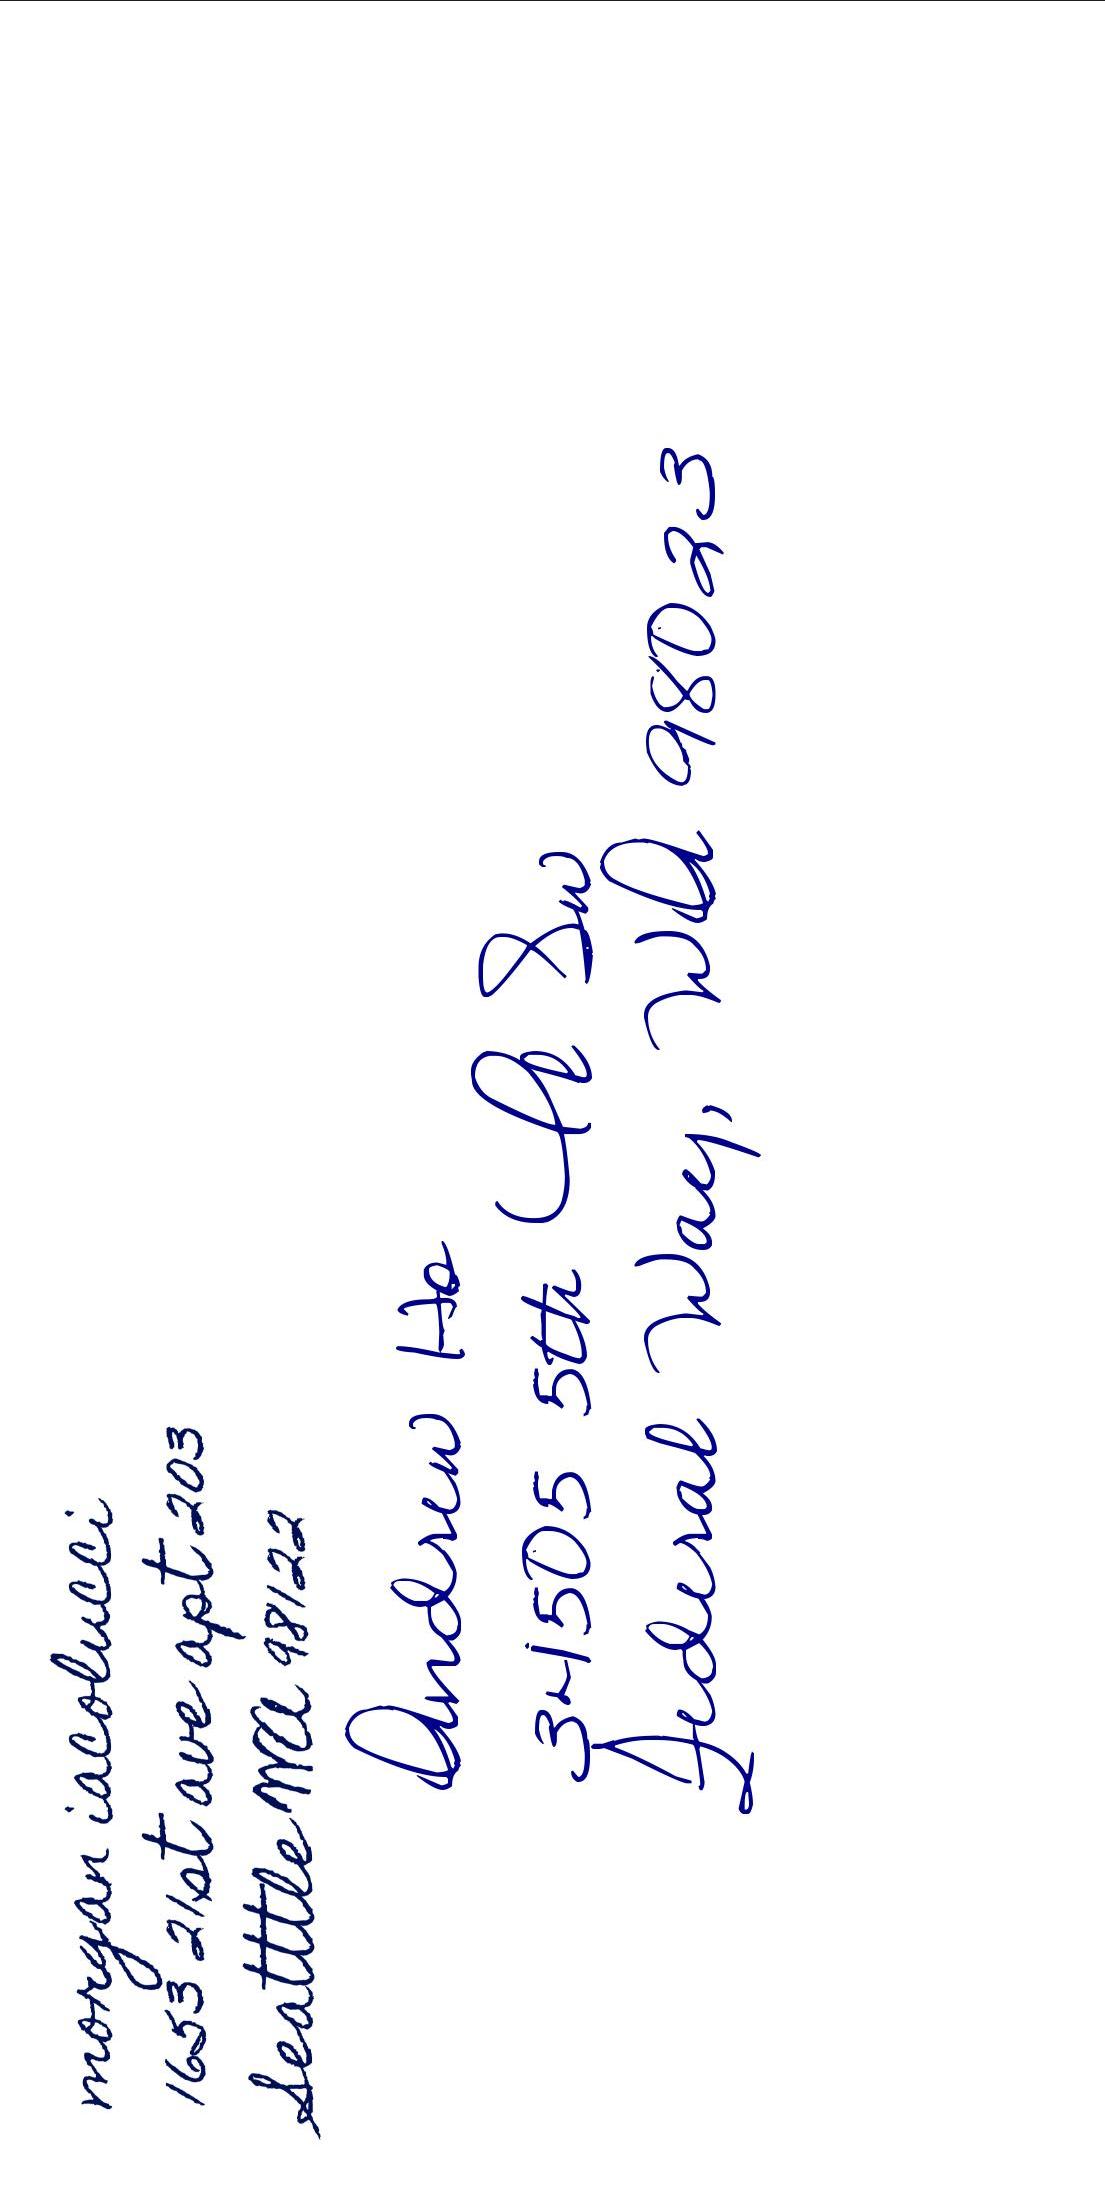 morgan iacolucci
1653 21st ave apt 203
Seattle WA 98122
Andrew Ho
34505 5th Pl SW
Federal Way, WA 98023